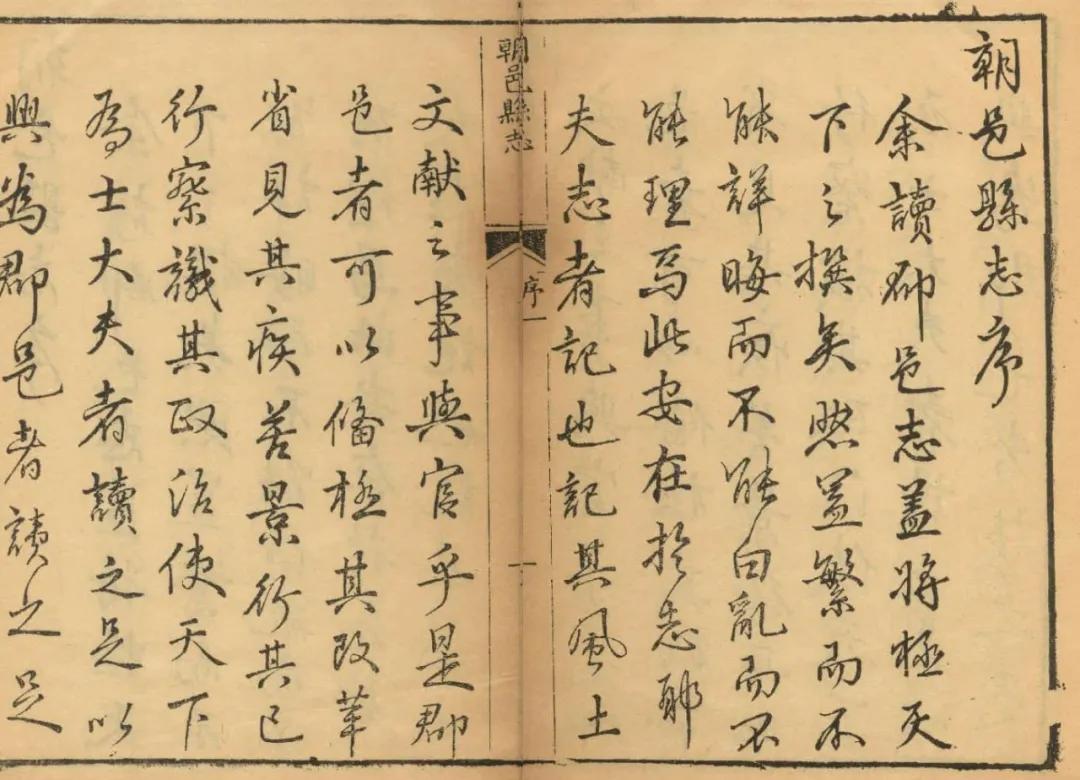 朝邑縣志序
余讀郡邑志蓋將極天
下之撰矣然蓋繁而不
能詳晦而不能白亂而不
能理焉此安在於志耶
夫志者記也記其風土
朝邑縣志
序一
一
文献之事與官乎是郡
邑者可以備極其改革
省見其疾苦景行其已
行察識其政治使天下
為士大夫者讀之足以
興為郡邑者讀之足